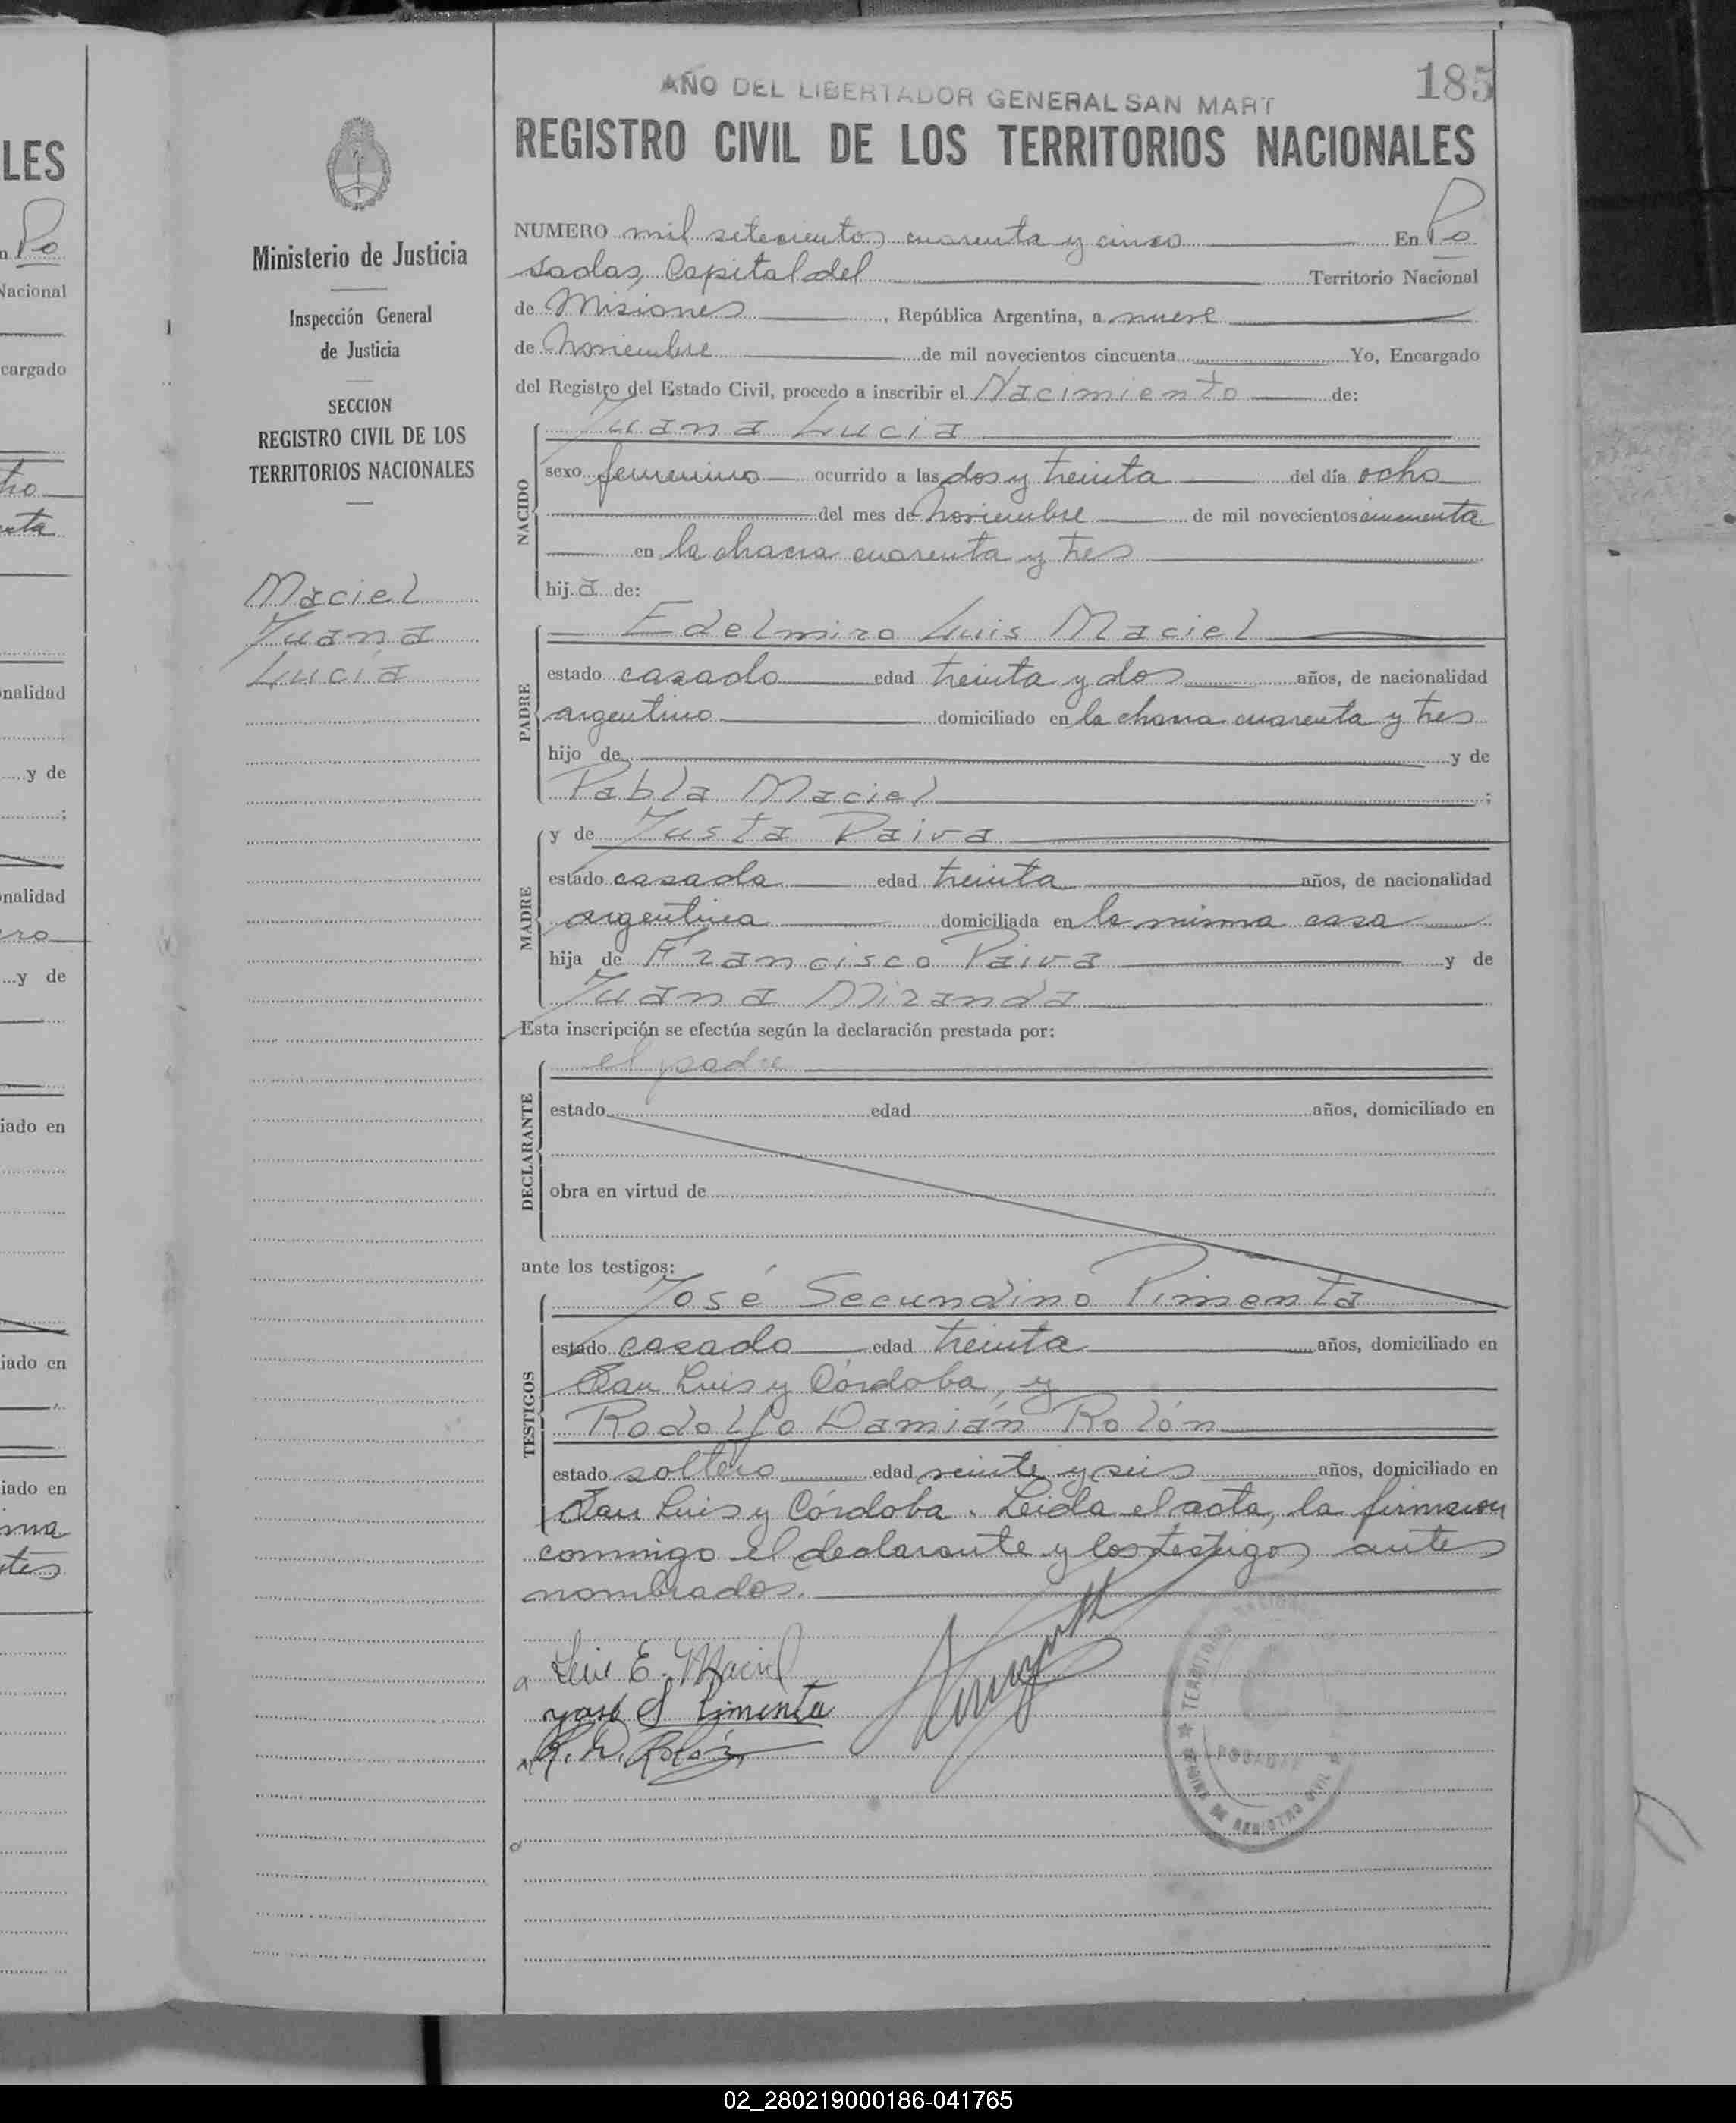 AÑO DEL LIBERTADOR GENERAL SAN MART
185
REGISTRO CIVIL DE LOS TERRITORIOS NACIONALES
Ministerio de Justicia
Inspección General
de Justicia
SECCION
REGISTRO CIVIL DE LOS
TERRITORIOS NACIONALES
Maciel
Juana
Lucía
NUMERO mil setecientos cuarenta y cinco En Po
sadas, Capital del Territorio Nacional
de Misiones, República Argentina, a nueve
de Noviembre de mil novecientos cincuenta Yo, Encargado
del Registro del Estado Civil, procedo a inscribir el Nacimiento de:
NACIDO
Juana Lucia
sexo femenino ocurrido a las dos y treinta del día ocho
del mes de Noviembre de mil novecientos cincuenta
en la chacra cuarenta y tres
hija de:
PADRE
Edelmiro Luis Maciel
estado casado edad treinta y dos años, de nacionalidad
argentino domiciliado en la chacra cuarenta y tres
hijo de y de
Pabla Maciel ;
MADRE
y de Justa Paiva
estado casada edad treinta años, de nacionalidad
argentina domiciliada en la misma casa
hija de Francisco Paiva y de
Juana Miranda
Esta inscripción se efectúa según la declaración prestada por:
DECLARANTE
el padre
estado edad años, domiciliado en
obra en virtud de
ante los testigos:
TESTIGOS
José Secundino Pimenta
estado casado edad treinta años, domiciliado en
San Luis y Córdoba, y
Rodolfo Damián Rolón
estado soltero edad veinte y seis años, domiciliado en
San Luis y Córdoba. Leida el acta, la firmaron
conmigo el declarante y los testigos antes
nombrados.
Luis E. Maciel
José S Pimenta
R. D. Rolón
POSADAS
OFICINA DE REGISTRO CIVIL
LES
n Po
Nacional
cargado
nta
nalidad
y de
;
nalidad
ro
y de
iado en
iado en
iado en
tes
02_280219000186-041765